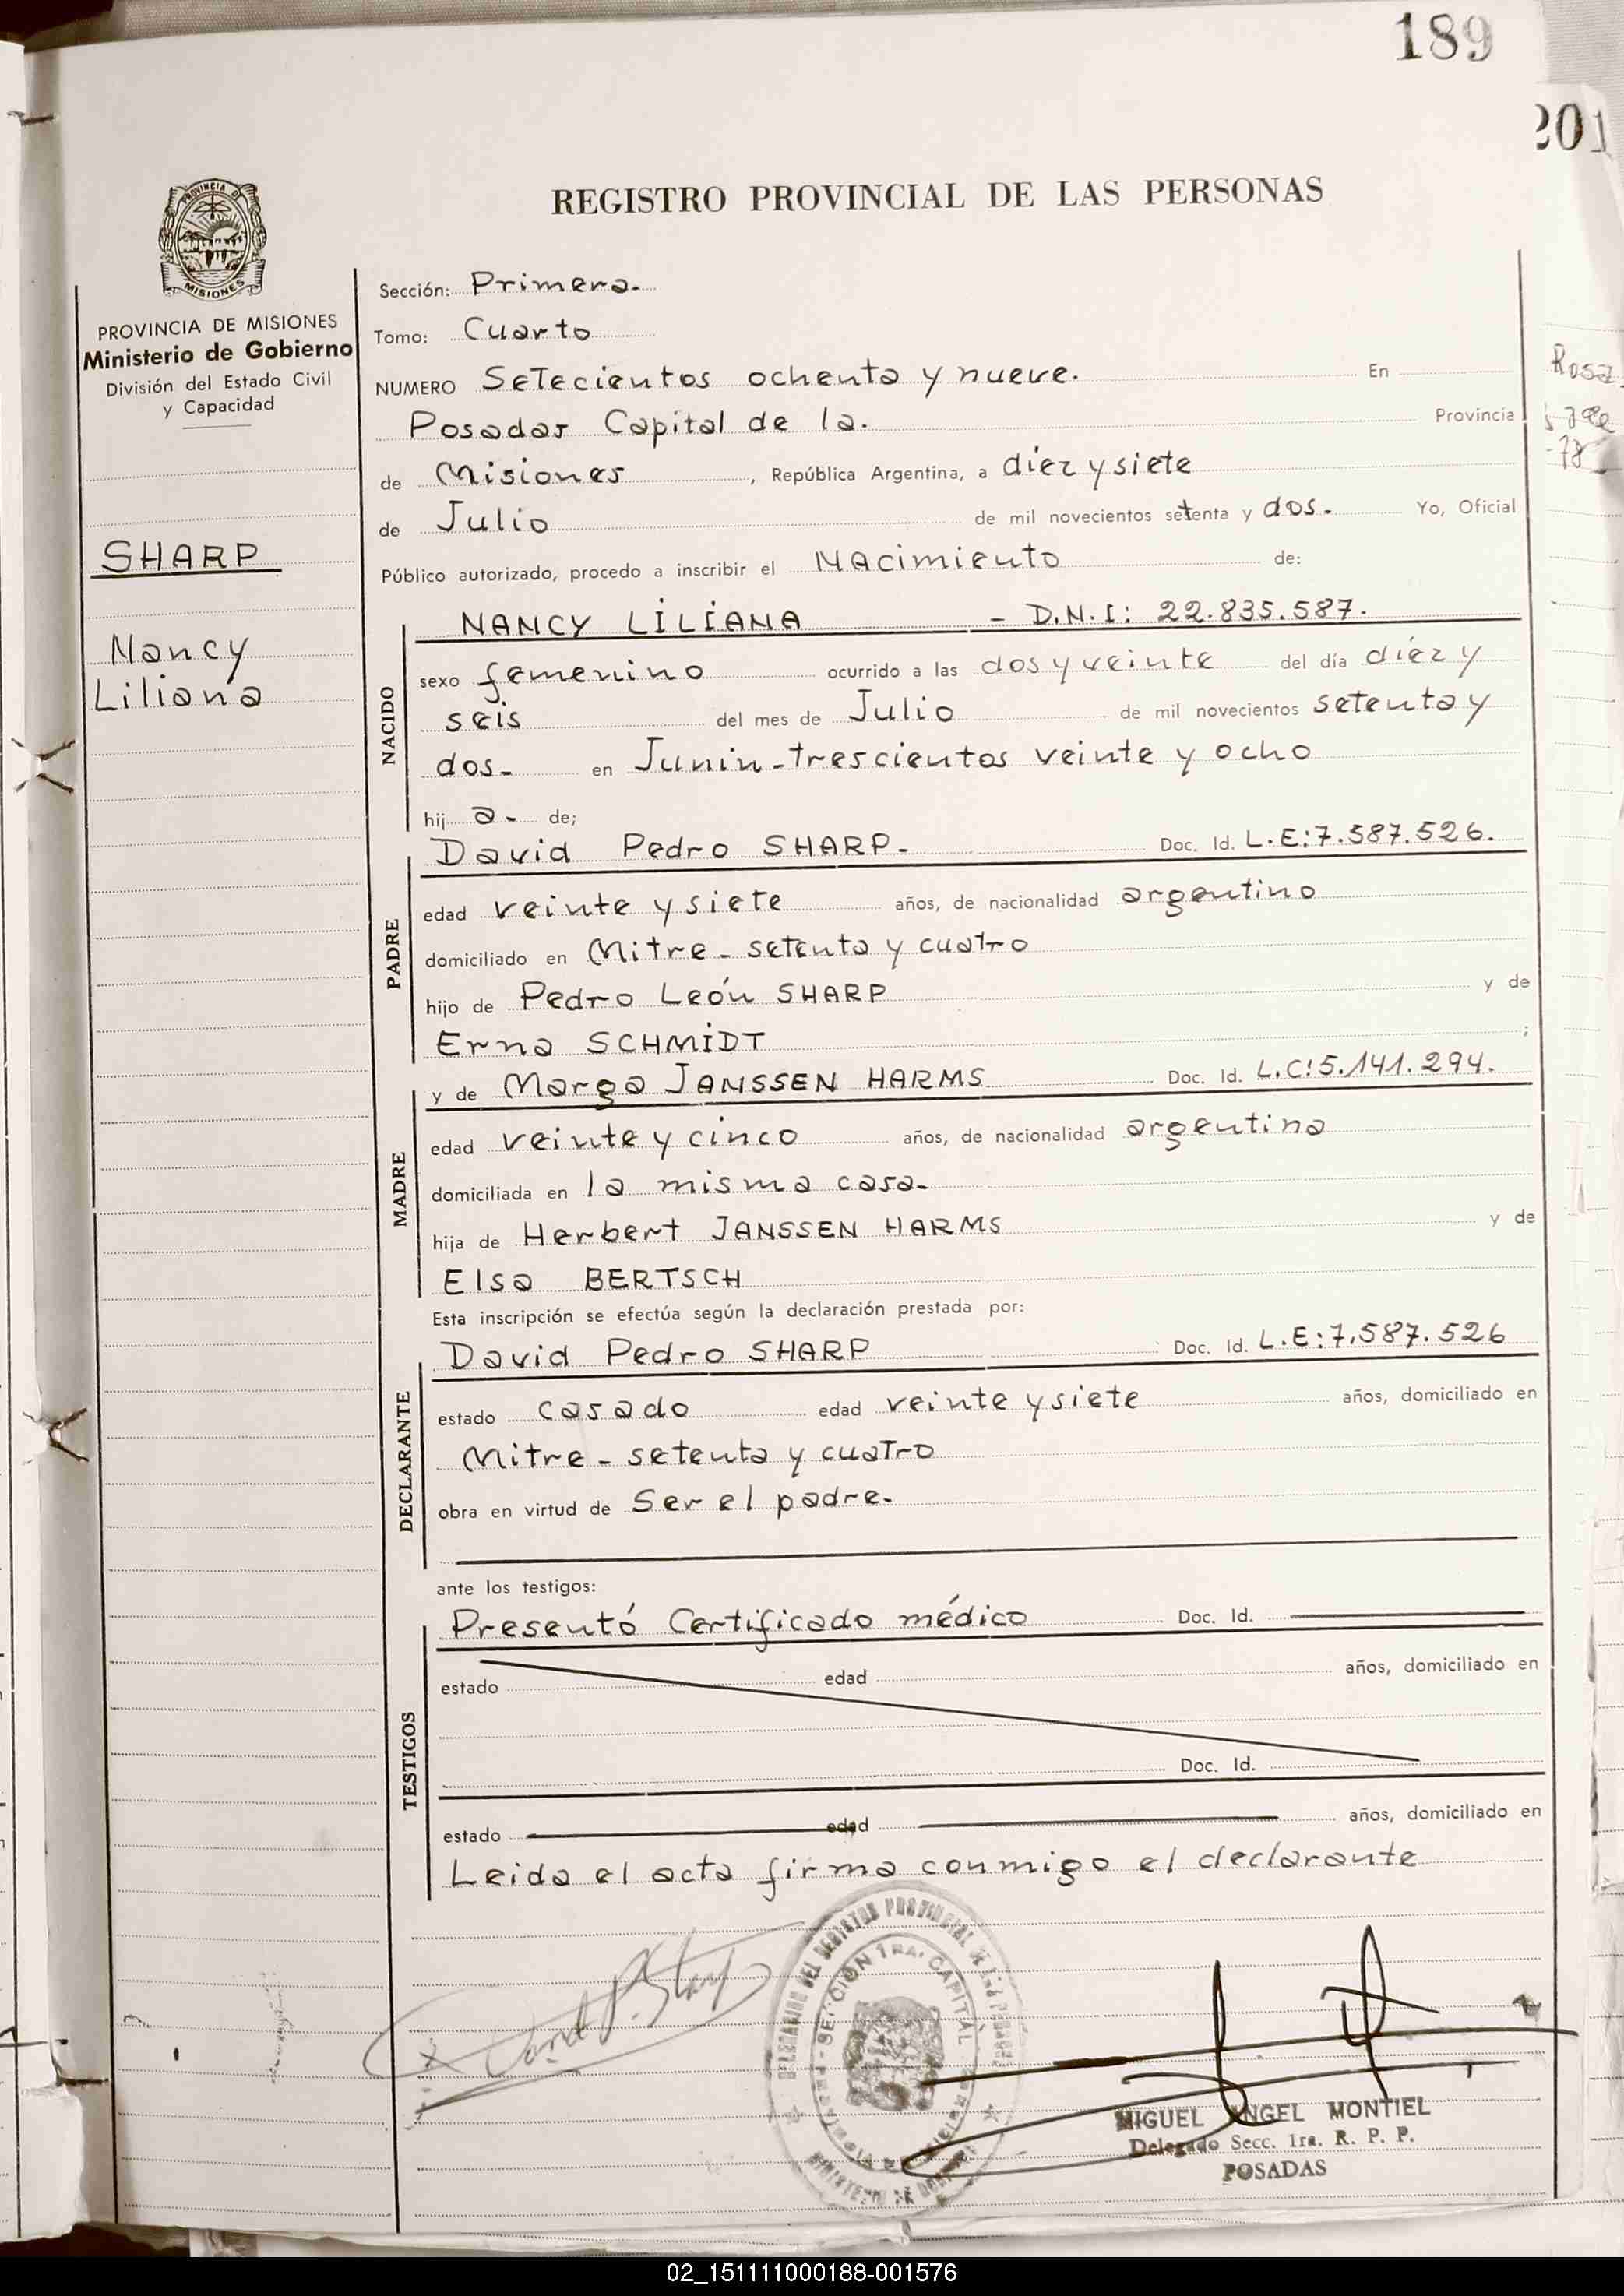 189
201
REGISTRO PROVINCIAL DE LAS PERSONAS
PROVINCIA DE
MISIONES
PROVINCIA DE MISIONES
Ministerio de Gobierno
División del Estado Civil
y Capacidad
SHARP
Nancy
Liliana
Sección: Primera.
Tomo: Cuarto
NUMERO Setecientos ochenta y nueve. En
Posadas Capital de la. Provincia
de Misiones, República Argentina, a diez y siete
de Julio de mil novecientos setenta y dos. Yo, Oficial
Público autorizado, procedo a inscribir el Nacimiento de:
NACIDO
NANCY LILIANA - D.N.I: 22.835.587.
sexo femenino ocurrido a las dos y veinte del día diéz y
seis del mes de Julio de mil novecientos setenta y
dos- en Junin-trescientos veinte y ocho
hij a- de;
PADRE
David Pedro SHARP- Doc. Id. L.E:7.587.526.
edad veinte y siete años, de nacionalidad argentino
domiciliado en Mitre - setenta y cuatro
hijo de Pedro León SHARP y de
Erna SCHMIDT ;
MADRE
y de Marga JANSSEN HARMS Doc. Id. L.C:5.141.294.
edad veinte y cinco años, de nacionalidad argentina
domiciliada en la misma casa-
hija de Herbert JANSSEN HARMS y de
Elsa BERTSCH
Esta inscripción se efectúa según la declaración prestada por:
DECLARANTE
David Pedro SHARP Doc. Id. L.E:7.587.526
estado casado edad veinte y siete años, domiciliado en
Mitre - setenta y cuatro
obra en virtud de Ser el padre.
ante los testigos:
TESTIGOS
Presentó Certificado médico Doc. Id.
estado edad años, domiciliado en
Doc. Id.
estado edad años, domiciliado en
Leida el acta firma conmigo el declarante
David P. Sharp
SECCION 1RA. CAPITAL
MIGUEL ANGEL MONTIEL
Delegado Secc. 1ra. R. P. P.
POSADAS
Rosa
02_151111000188-001576